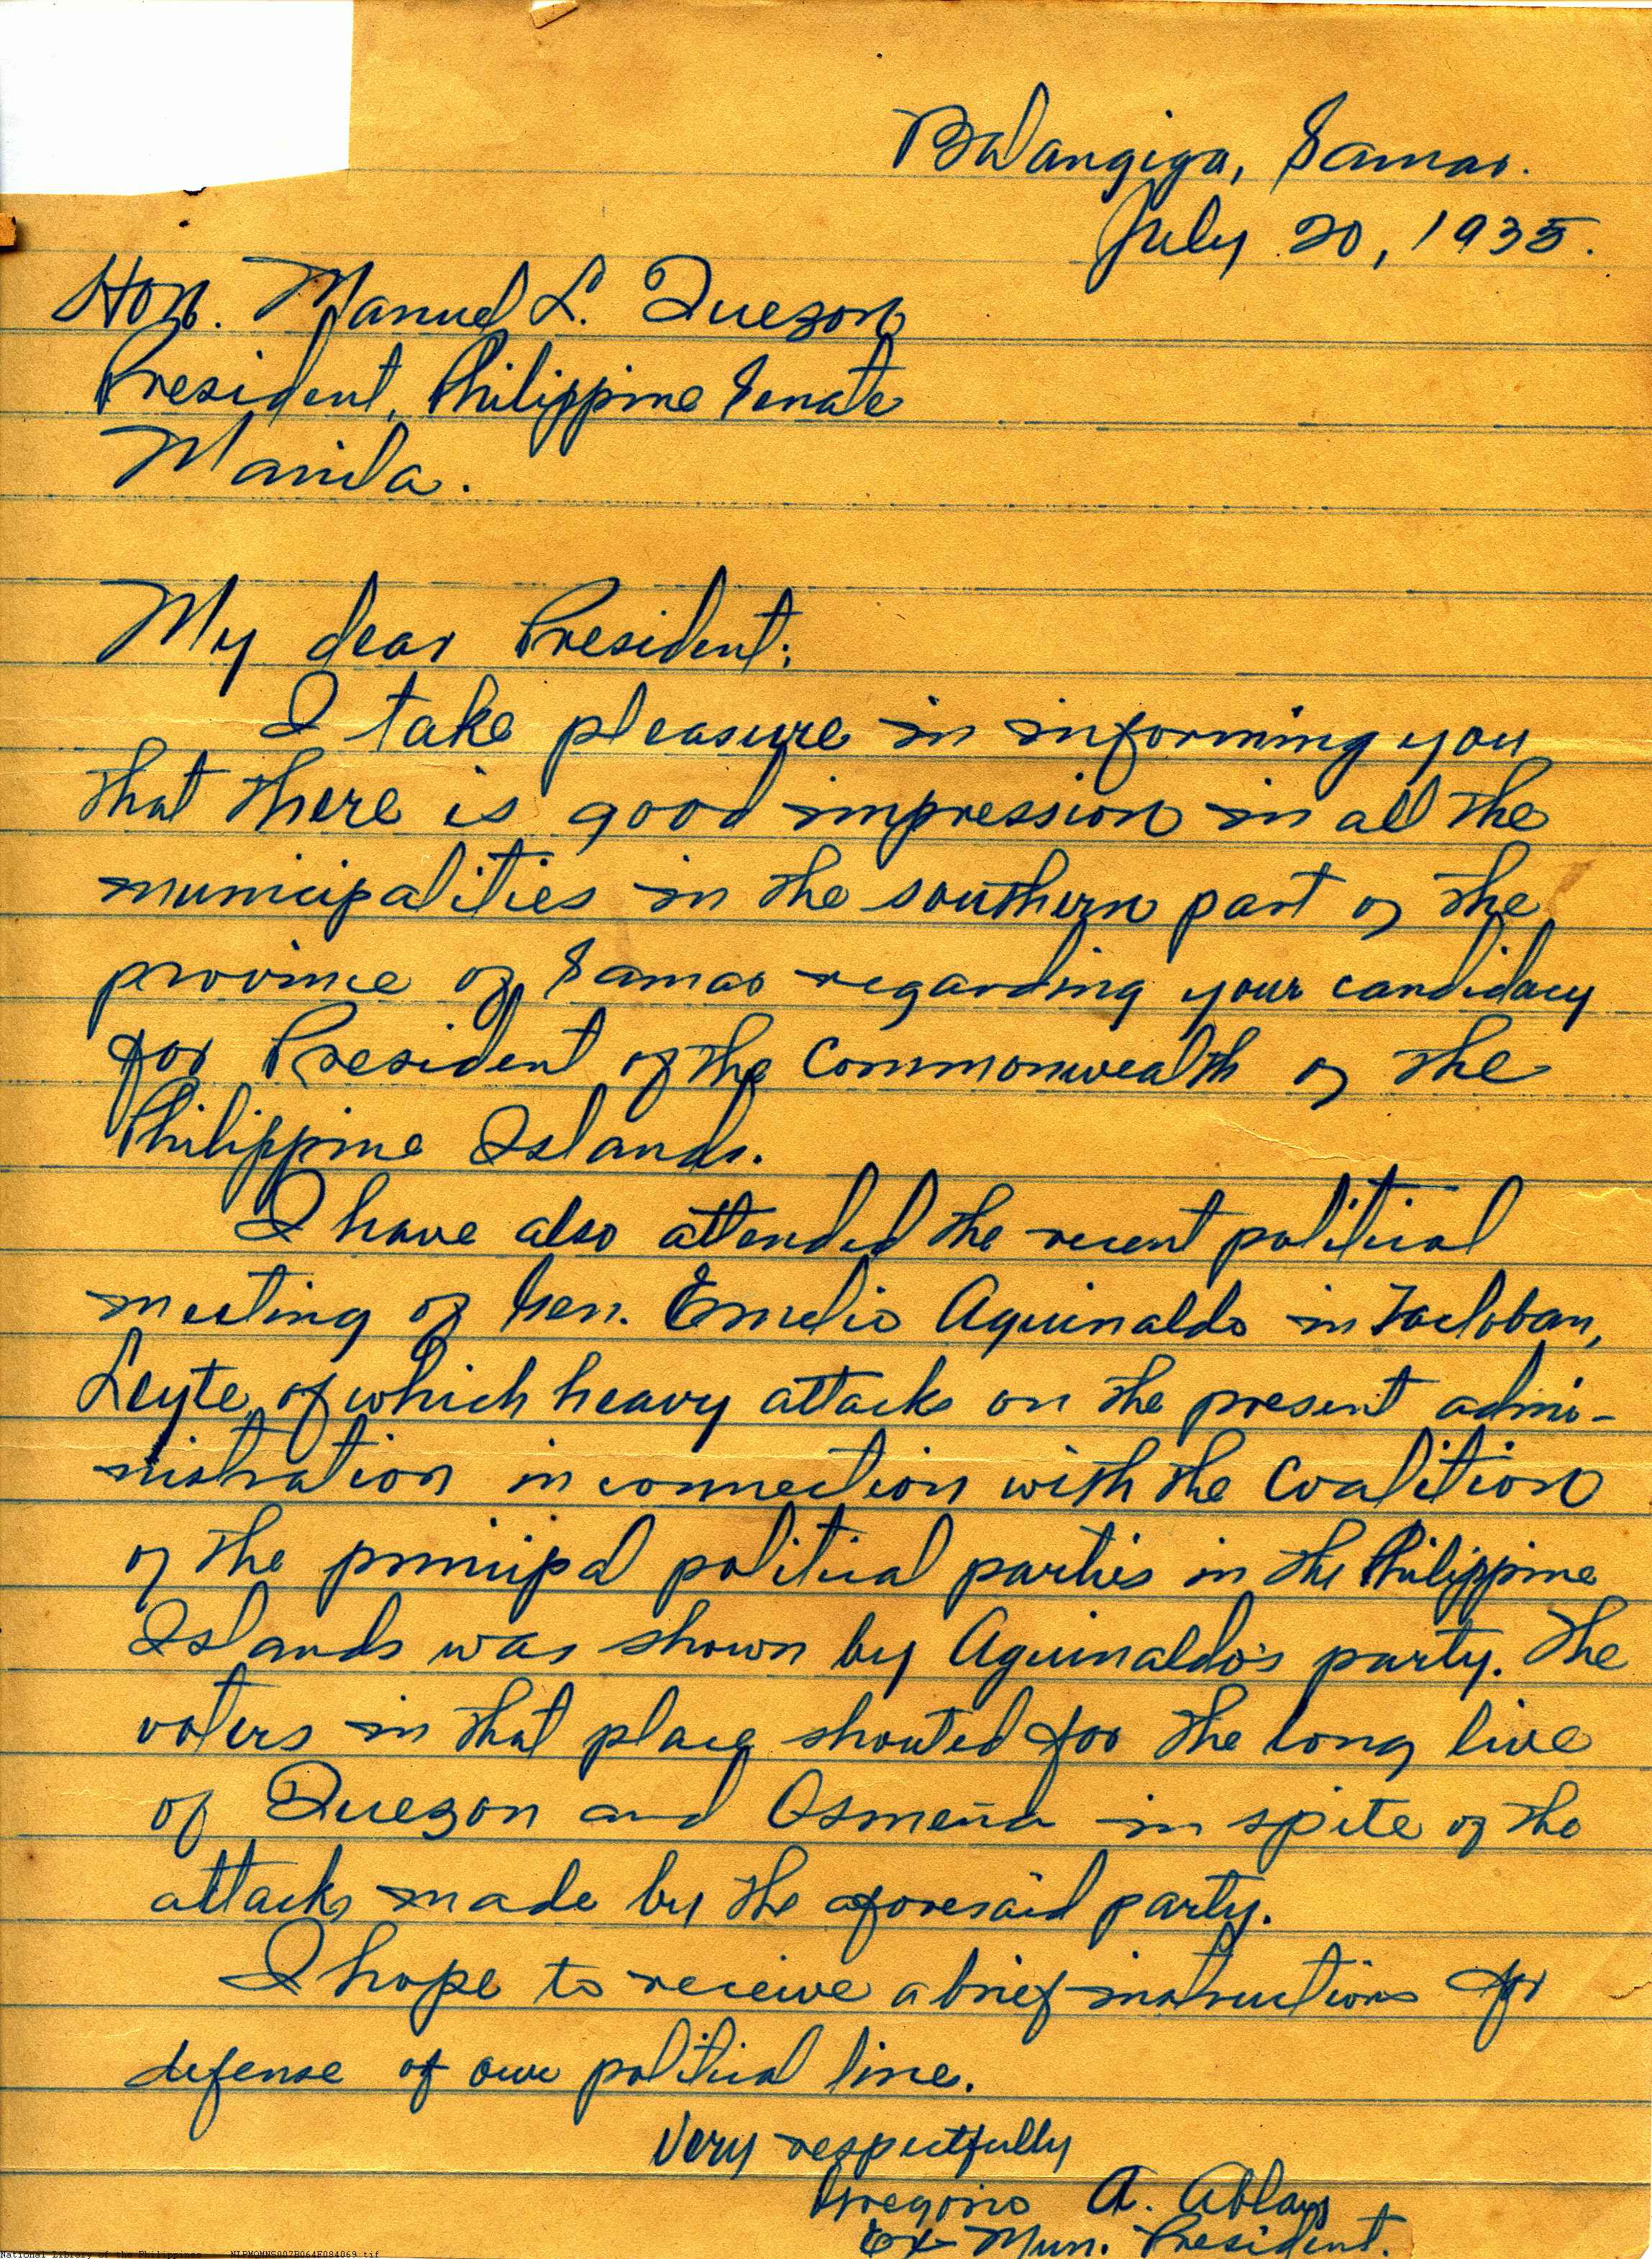 Balangiga, Samar.
July 20, 1935.
Hon. Manuel L. Quezon
President, Philippine Senate
Manila.
My dear President:
I take pleasure in informing you
that there is good impression in all the
municipalities in the southern part of the
province of Samar regarding your candidacy
for President of the Commonwealth of the
Philippine Islands.
I have also attended the recent political
meeting of Gen. Emelio Aguinaldo in Tacloban,
Leyte, of which heavy attacks on the present admi-
nistration in connection with the Coalition
of the principal political parties in the Philippine
Islands was shown by Aguinaldo's party. The
voters in that place shouted for the long live
of Quezon and Osmeña in spite of the
attacks made by the aforesaid party.
I hope to receive a brief instructions for
defense of our political line.
Very respectfully
Gregorio A. Ablay
Ex-Mun. President.
National Library of the Philippines NLPMQMNS007B064F084069.tif